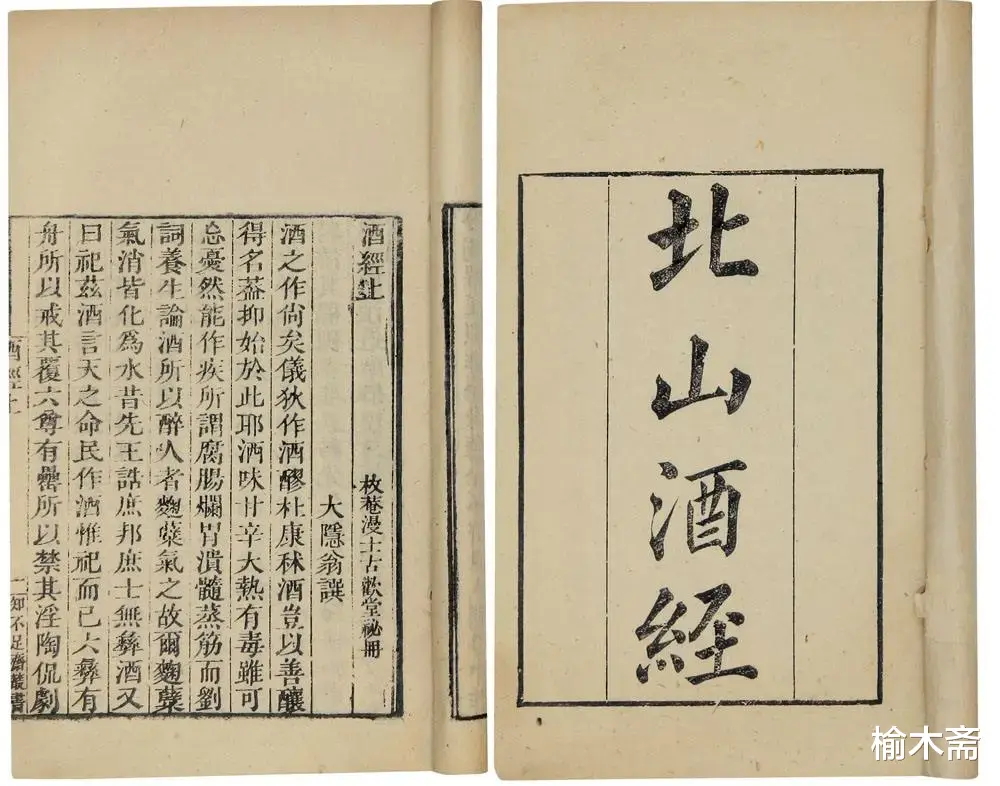 北山酒經
酒經上
枚菴漫士古歡堂祕冊
大隱翁譔
酒之作尙矣儀狄作酒醪杜康秫酒豈以善釀
得名葢抑始於此耶酒味甘辛大熱有毒雖可
忘憂然能作疾所謂腐腸爛胃潰髓蒸筋而劉
詞養生論酒所以醉人者麴糵氣之故爾麴糵
氣消皆化爲水昔先王誥庶邦庶士無彝酒又
曰祀茲酒言天之命民作酒惟祀而已六彝有
舟所以戒其覆六尊有罍所以禁其淫陶侃劇
酒經上
一知不足齋叢書
榆木斋